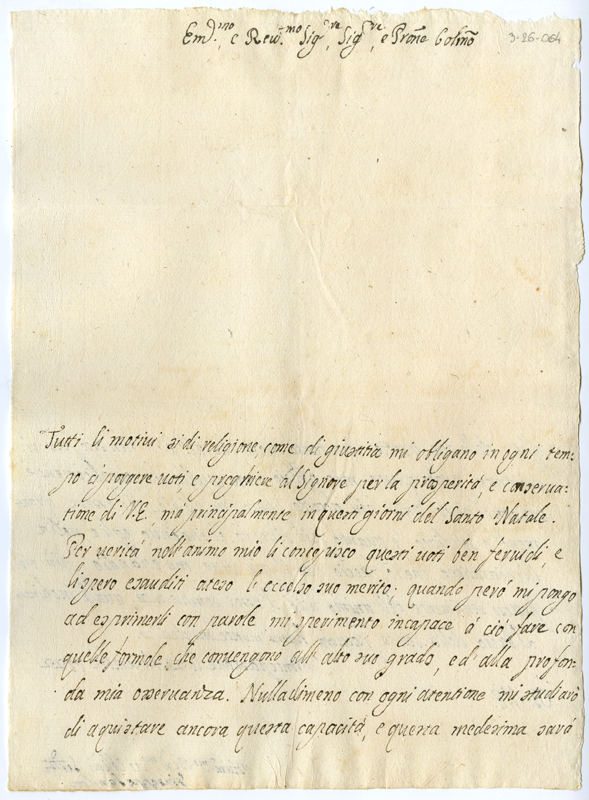 Em.mo, e Rev.mo Sig.re, Sig.re, e Prone Colmo 3-26-064
Tutti li motivi si di religione come di giustitia mi obligano in ogni tem-
po a porgere voti, e preghiere al Signore per la prosperitá, e conserva-
tione di V.E. má principalmente in questi giorni del Santo Natale.
Per veritá nell'animo mio li concepisco questi voti ben fervidi, e
li spero esauditi ateso l'eccelso suo merito; quando peró mi pongo
ad esprimerli con parole mi sperimento incapace á ció fare con
quelle formole, che convengono all'alto suo grado, ed' alla profon-
da mia osservanza. Nulladimeno con ogni atentione mi studiaró
di aquistare ancora questa capacitá, e questa medesima sará